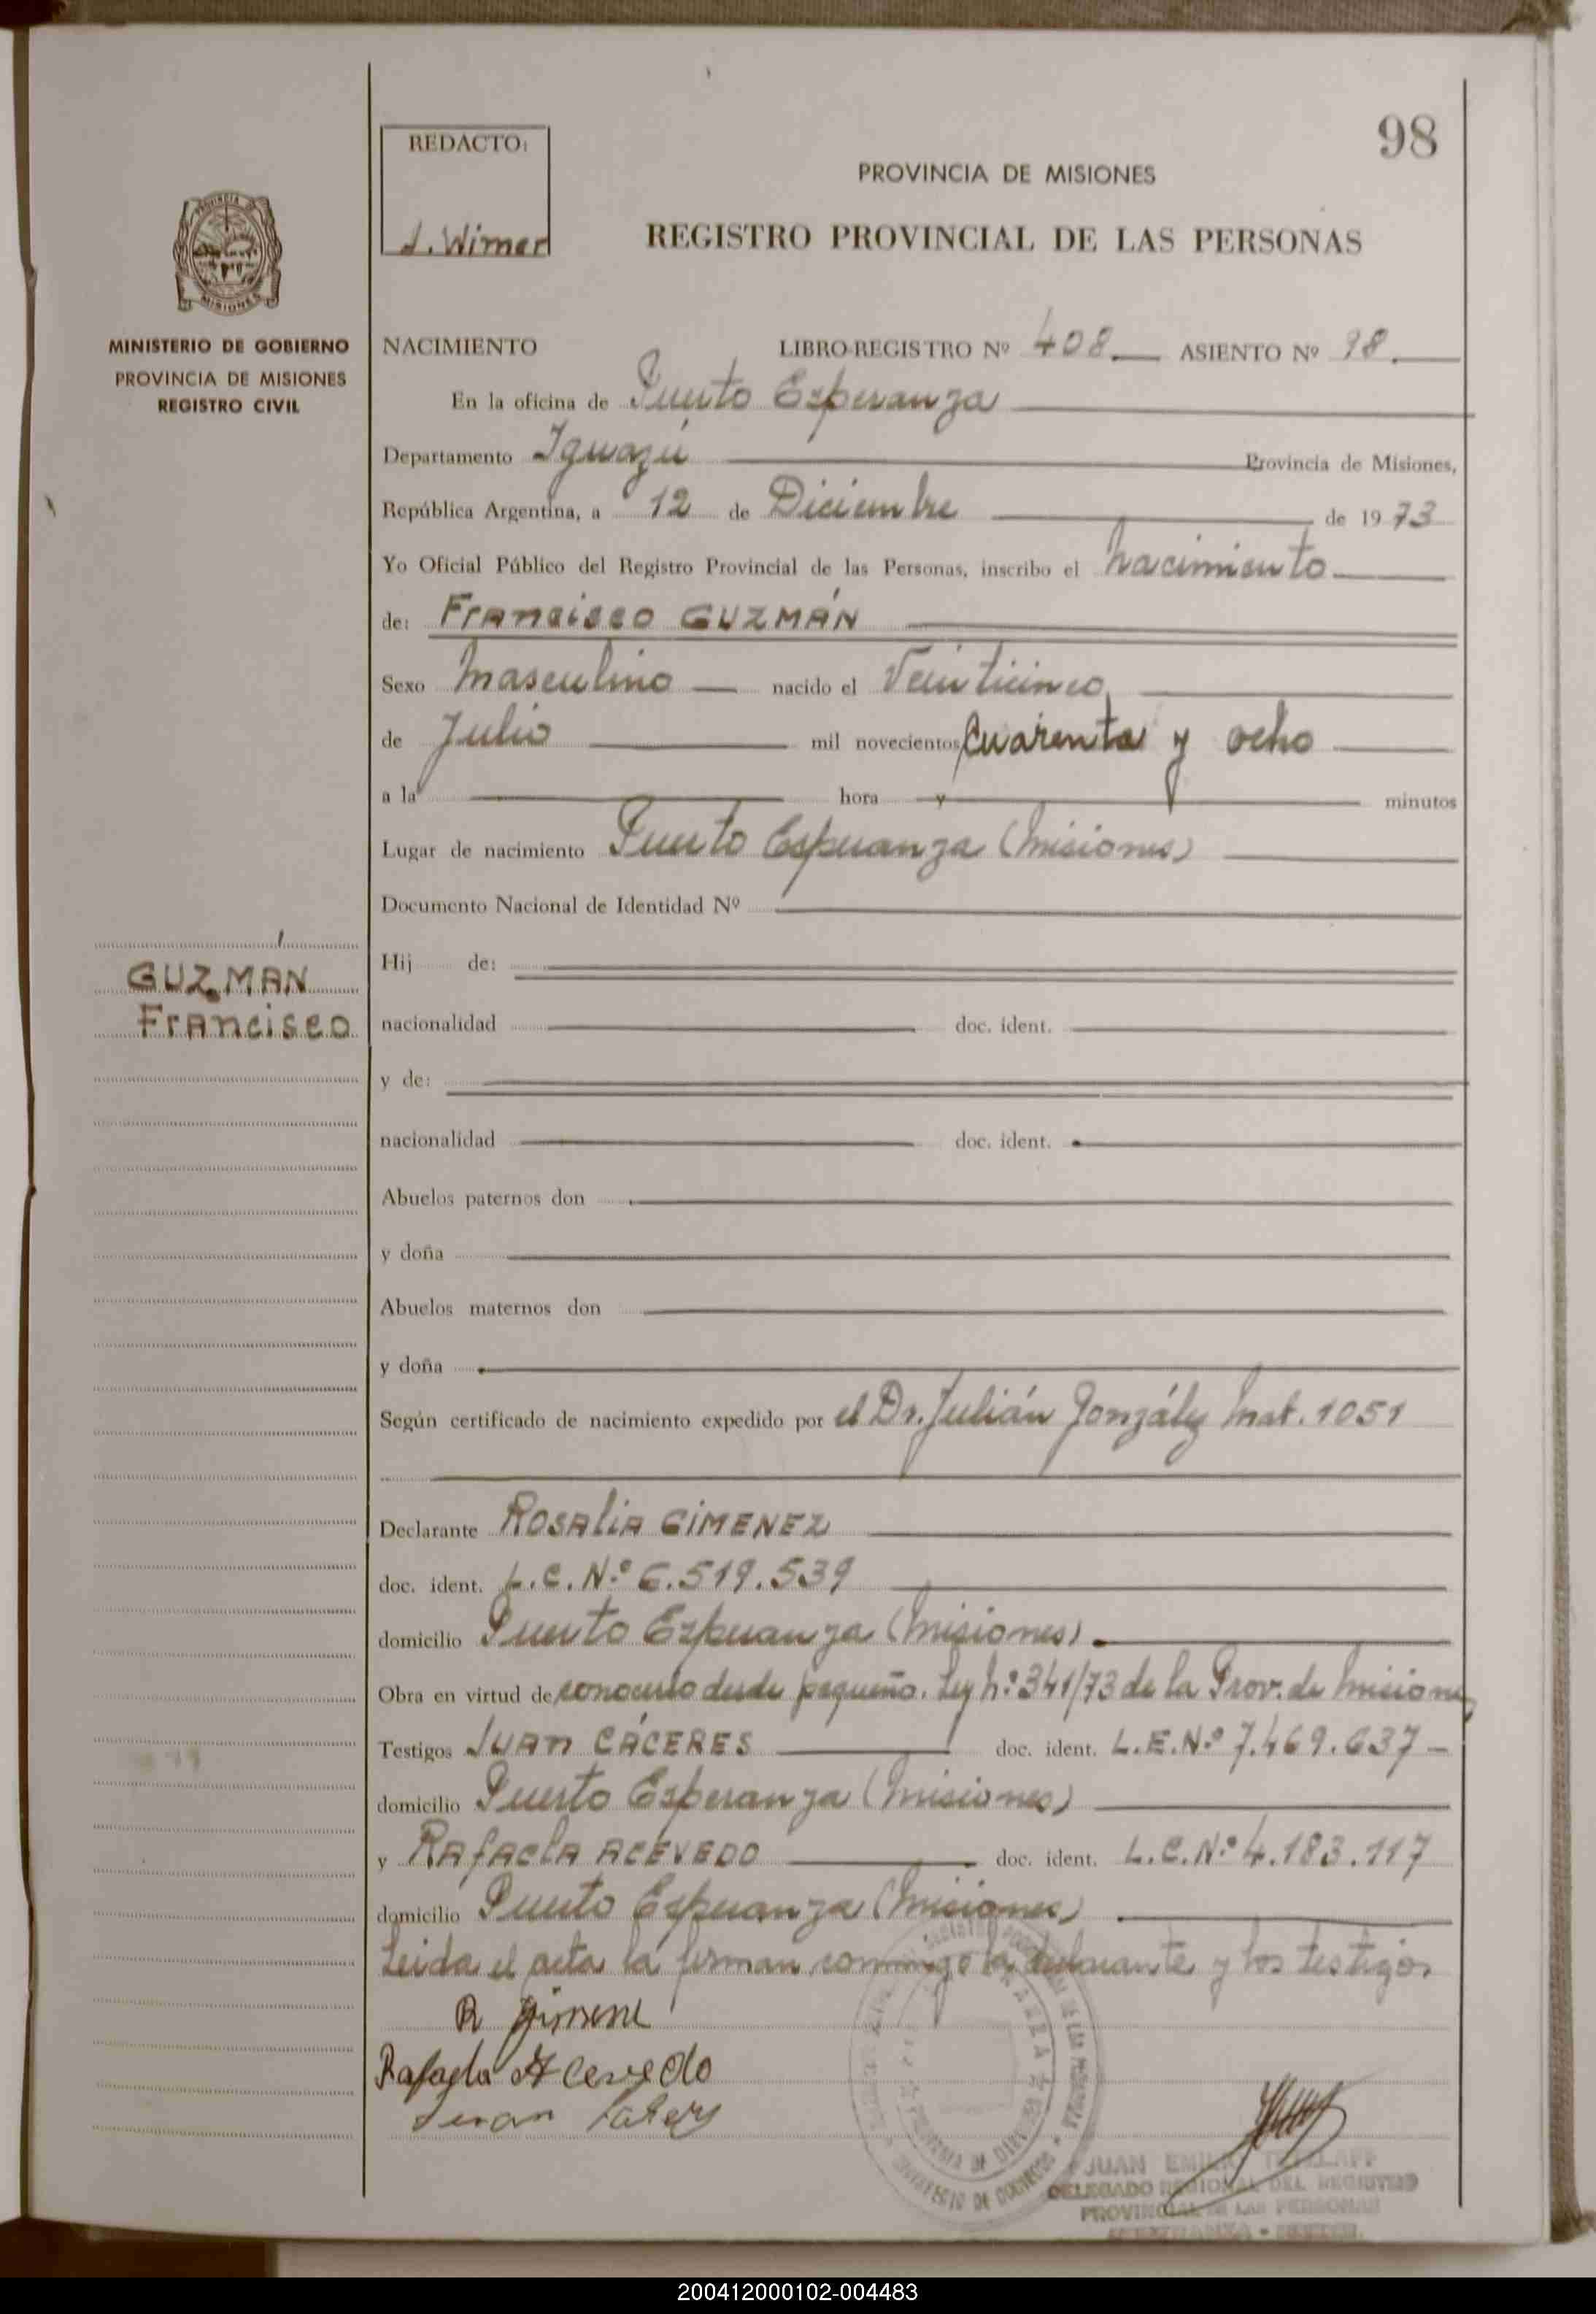 98
REDACTO:
L. Wimer
PROVINCIA DE MISIONES
REGISTRO PROVINCIAL DE LAS PERSONAS
PROVINCIA DE
MISIONES
MINISTERIO DE GOBIERNO
PROVINCIA DE MISIONES
REGISTRO CIVIL
NACIMIENTO LIBRO-REGISTRO Nº 408 ASIENTO Nº 98.
En la oficina de Puerto Esperanza
Departamento Iguazú Provincia de Misiones,
República Argentina, a 12 de Diciembre de 1973
Yo Oficial Público del Registro Provincial de las Personas, inscribo el nacimiento
de: Francisco GUZMÁN
Sexo masculino nacido el Veinticinco
de Julio mil novecientos Cuarenta y ocho
a la hora y minutos
Lugar de nacimiento Puerto Esperanza (Misiones)
Documento Nacional de Identidad Nº
GUZMÁN
Francisco
Hij de:
nacionalidad doc. ident.
y de:
nacionalidad doc. ident.
Abuelos paternos don
y doña
Abuelos maternos don
y doña
Según certificado de nacimiento expedido por el Dr. Julián González Mat. 1051
Declarante Rosalia GIMENEZ
doc. ident. L.C.Nº 6.519.539
domicilio Puerto Esperanza (Misiones).
Obra en virtud de conocerlo desde pequeño. Ley Nº 341/73 de la Prov. de Misiones
Testigos Juan CÁCERES doc. ident. L.E.Nº 7.469.637 -
domicilio Puerto Esperanza (Misiones)
y Rafaela ACEVEDO doc. ident. L.C.Nº 4.183.117
domicilio Puerto Esperanza (Misiones)
Leida el acta la firman conmigo la declarante y los testigos
R Gimene
Rafaela Acevedo
Juan
JUAN EMILIO
DELEGADO REGIONAL DEL REGISTRO
PROVINCIAL DE LAS PERSONAS
200412000102-004483